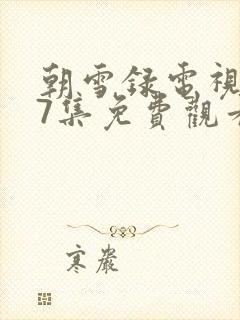 朝雪録電視
7集免費觀看
寒巖